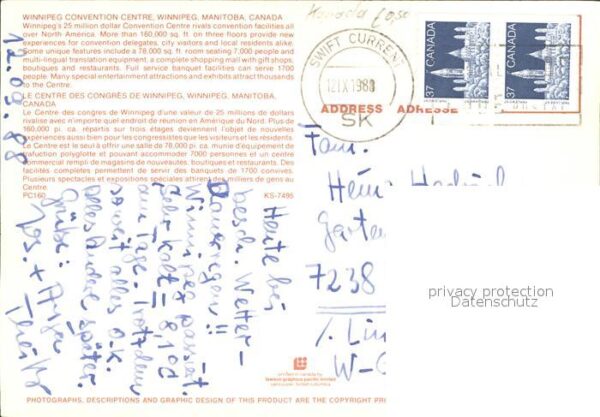 WINNIPEG CONVENTION CENTRE, WINNIPEG, MANITOBA, CANADA
Winnipeg's 25 million dollar Convention Centre rivals convention facilities all
over North America. More than 160,000 sq. ft. on three floors provide new
experiences for convention delegates, city visitors and local residents alike.
Some unique features include a 78,000 sq. ft. room seating 7,000 people and
multi-lingual translation equipment, a complete shopping mall with gift shops,
boutiques and restaurants. Full service banquet facilities can service 1700
people. Many special entertainment attractions and exhibits attract thousands
to the Centre.
LE CENTRE DES CONGRÈS DE WINNIPEG, WINNIPEG, MANITOBA,
CANADA
Le Centre des congrès de Winnipeg d'une valeur de 25 millions de dollars
rivalise avec n'importe quel endroit de réunion en Amérique du Nord. Plus de
160,000 pi. ca. répartis sur trois étages deviennent l'objet de nouvelles
expériences aussi bien pour les congressistes que les visiteurs et les résidents.
Le Centre est le seul à offrir une salle de 78,000 pi. ca. munie d'equipement de
traduction polyglotte et pouvant accommoder 7000 personnes et un centre
commercial rempli de magasins de nouveautés, boutiques et restaurants. Des
facilités complètes permettent de servir des banquets de 1700 convives.
Plusieurs spectacles et expositions spéciales attirent des milliers de gens au
Centre
PC160 KS-7495
12.09.88
Heute bei
besch. Wetter-
Winnipeg passiert.
Sehr kalt = 8,10d
am Tage. Trotzdem
soweit alles o.k.
alles Andere später.
Grüße
Jos. +
Kanada 0,50
SWIFT CURRENT
12 IX 1988
SK
CANADA 37
CANADA 37
ADDRESS ADRESSE
Fam.
Heinz
Garten
7238
W-
privacy protection
Datenschutz
PHOTOGRAPHS, DESCRIPTIONS AND GRAPHIC DESIGN OF THIS PRODUCT ARE THE COPYRIGHT